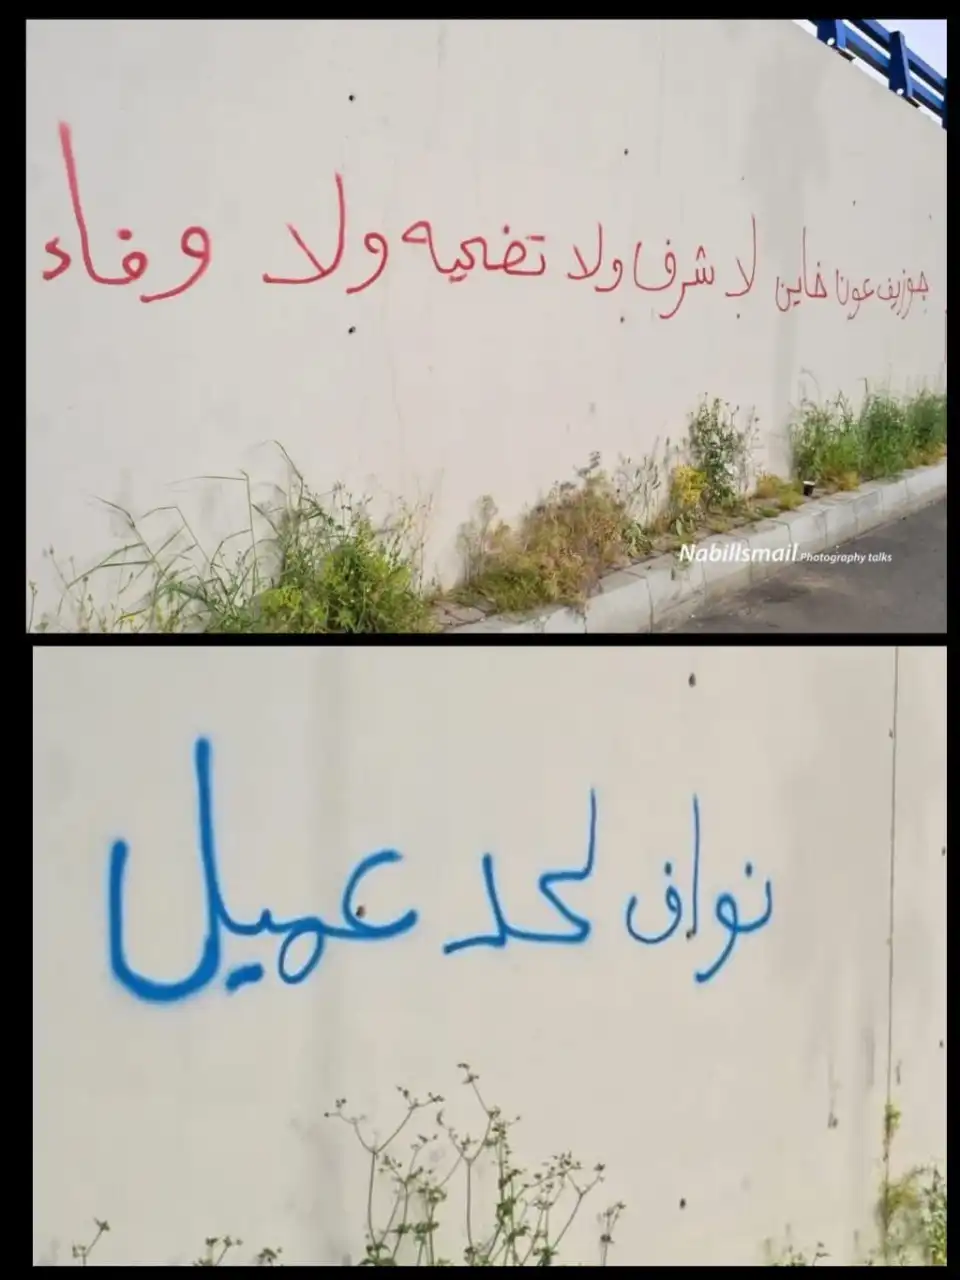 جوزيف عون خاين لا شرف ولا تضحيه ولا وفاء
NabilIsmail.Photography talks
نواف لحد عميل